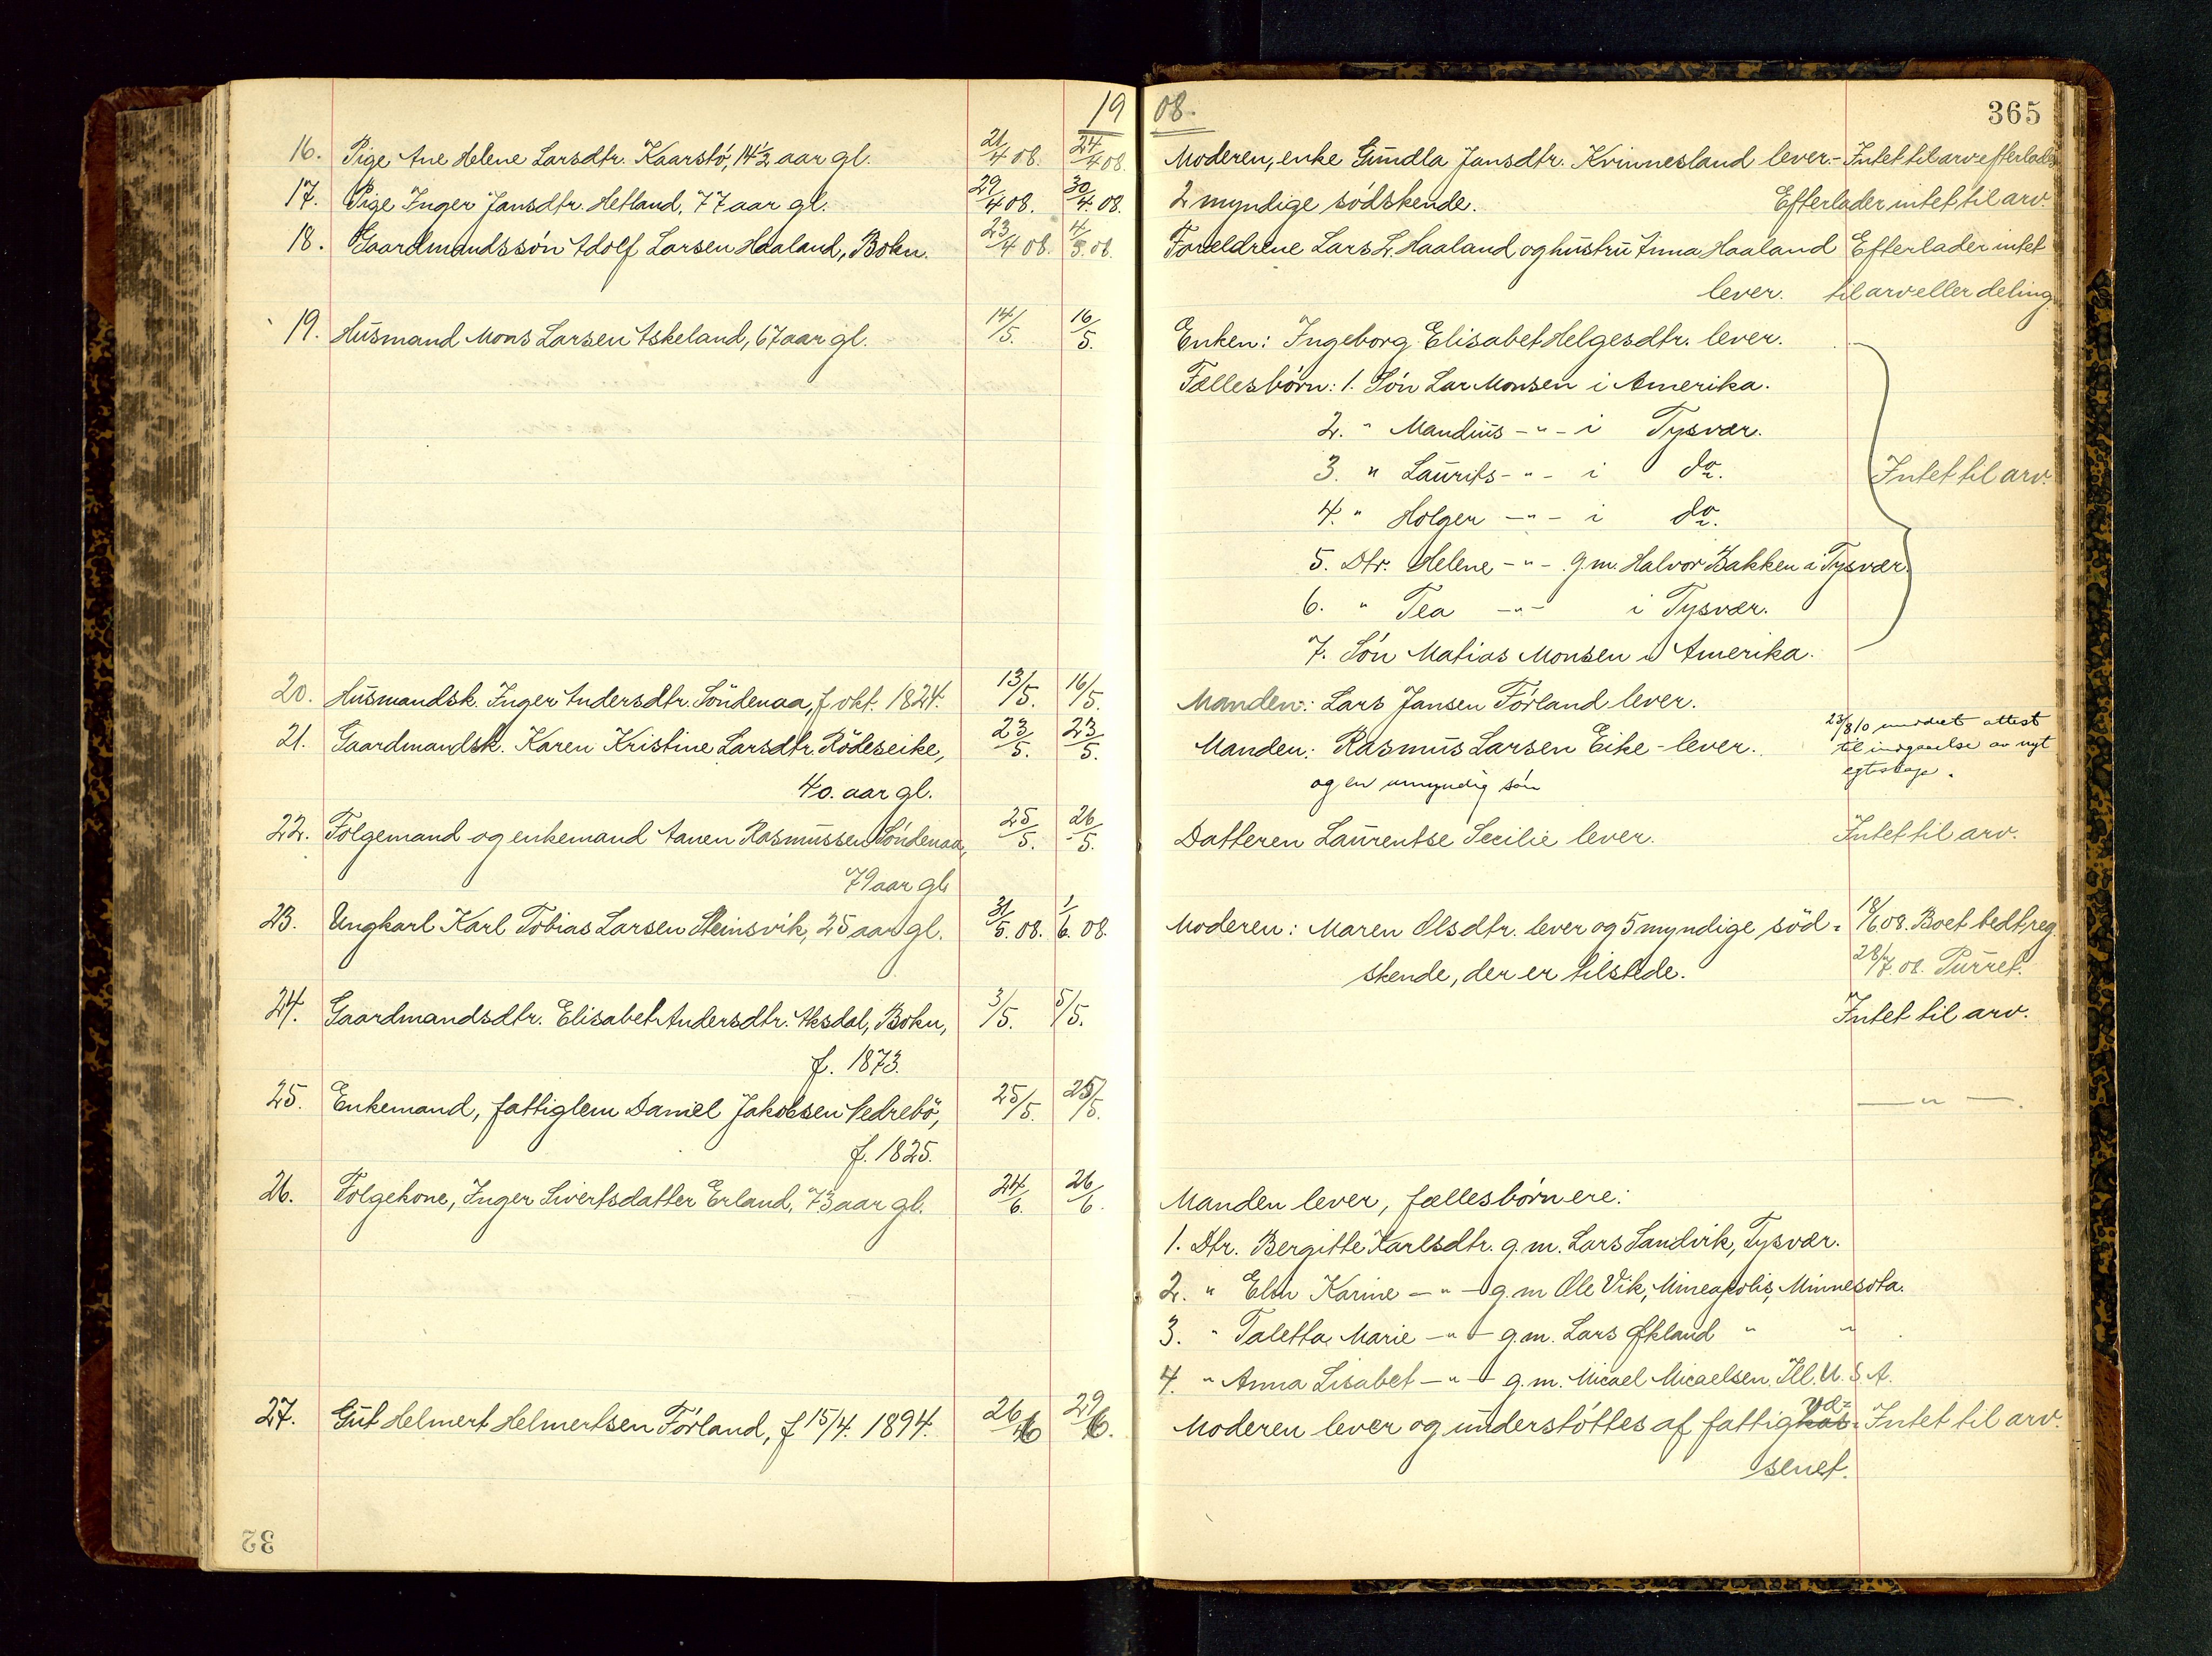 19 08.
365
16. Pige Ane Helene Larsdtr. Kaarstö, 14½ aar gl. 21/4 08. 24/4 08. Moderen, enke Gundla Jansdtr. Kvinnesland lever.- Intet til arv efterlades
17. Pige Inger Jansdtr. Hetland, 77 aar gl. 29/4 08. 30/4. 08. 2 myndige södskende. Efterlader intet til arv.
18. Gaardmandssön Adolf Larsen Haaland, Bokn. 23/4 08. 4/5. 08. Foreldrene Lars L. Haaland og hustru Anna Haaland Efterlader intet
lever. til arv eller deling.
19. Husmand Mons Larsen Askeland, 67 aar gl. 14/5. 16/5. Enken: Ingeborg Elisabet Helgesdtr. lever.
Fællesbörn: 1. Sön Lar Monsen i Amerika.
2. " Mandius - " - i Tysvær.
3. " Laurits - " - i do.
Intet til arv.
4. " Holger - " - i do.
5. Dtr. Helene - " - g.m. Halvor Bakken i Tysvær.
6. " Tea - " - i Tysvær.
7. Sön Matias Monsen i Amerika.
20. Husmandsk. Inger Andersdtr. Söndenaa, f okt. 1824. 13/5. 16/5. Manden: Lars Jansen Förland lever.
21. Gaardmandsk. Karen Kristine Larsdtr. Rödeseike, 23/5. 23/5. Manden: Rasmus Larsen Eike - lever. 23/8 10 meddelt attest
til indgaaelse av nyt
40. aar gl. og en umyndig sön egteskap.
22. Folgemand og enkemand Aanen Rasmussen Söndenaa, 25/5. 26/5. Datteren Laurentse Secilie lever. Intet til arv.
79 aar gl.
23. Ungkarl Karl Tobias Larsen Steinsvik, 25 aar gl. 31/5. 08. 1/6. 08. Moderen: Maren Olsdtr. lever og 5 myndige söd= 18/6 08. Boet bedt reg.
skende, der er tilstede. 28/7. 08. Purret.
24. Gaardmandsdtr. Elisabet Andersdtr. Aksdal, Bokn, 3/5. 5/5. Intet til arv.
f. 1873.
25. Enkemand, fattiglem Daniel Jakobsen Nedrebö, 25/5. 25/5. — " —.
f. 1825.
26. Folgekone, Inger Sivertsdatter Erland, 73 aar gl. 24/6. 26/6. Manden lever, fællesbörn ere:
1. Dtr. Bergitte Karlsdtr. g.m. Lars Sandvik, Tysvær.
2. " Elen Karine - " - g.m Ole Vik, Mineapolis, Minnesota.
3. " Taletta Marie - " - g.m. Lars Økland " "
4. " Anna Lisabet - " - g.m. Micael Micaelsen, Ill. U.S.A.
27. Gut Helmert Helmertsen Förland, f 15/4. 1894. 26/6 29/6. Moderen lever og understöttes af fattigkas væ= Intet til arv.
senet.
32